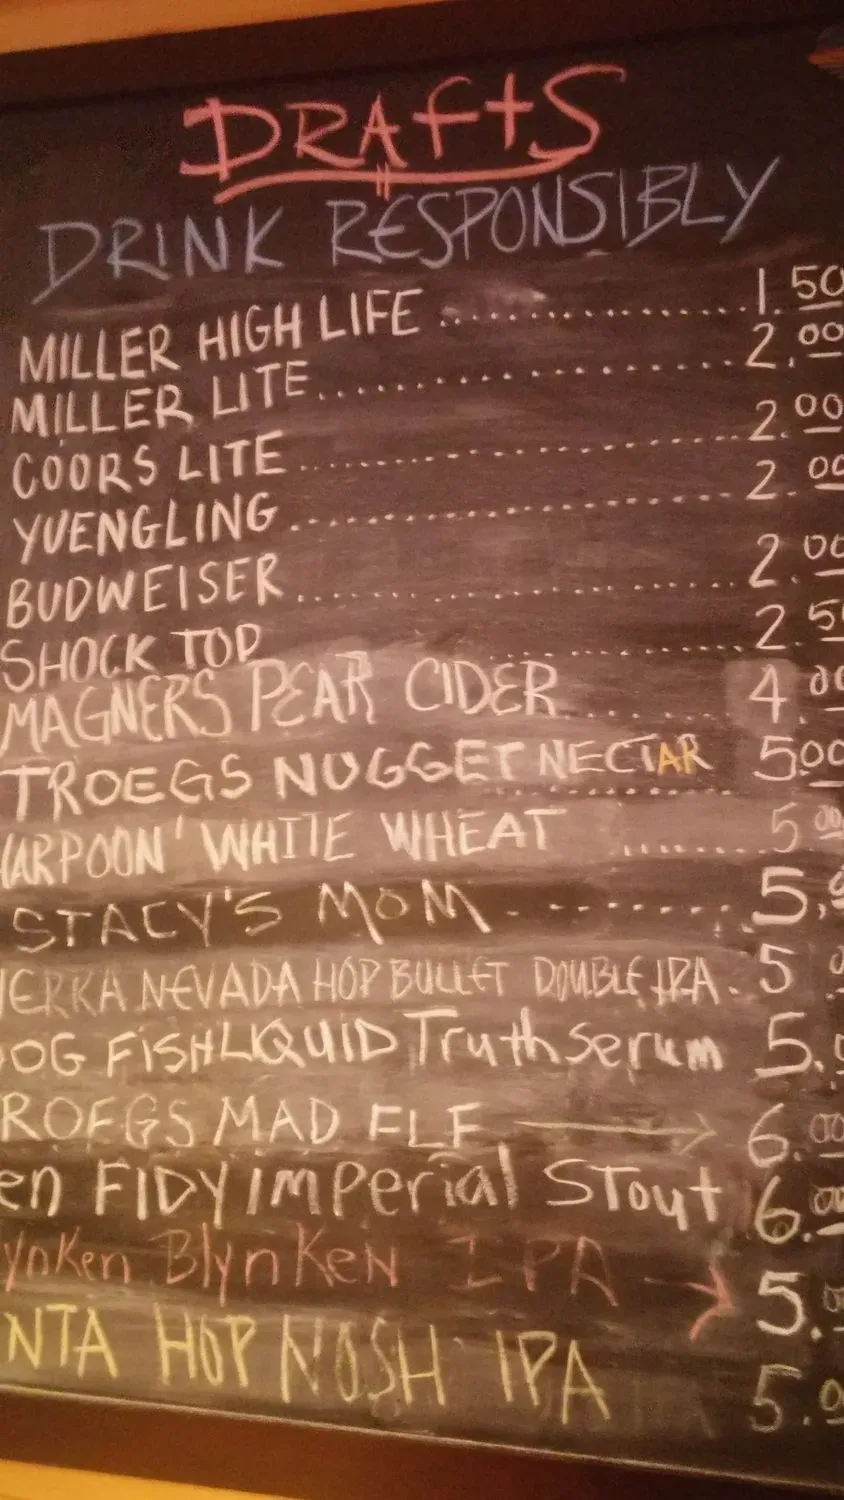 DRAFTS
DRINK RESPONSIBLY
MILLER HIGH LIFE ..................... 1.50
MILLER LITE ..................... 2.00
COORS LITE ..................... 2.00
YUENGLING ..................... 2.00
BUDWEISER ..................... 2.00
SHOCK TOP ............... 2 5
MAGNERS PEAR CIDER ........ 4.00
TROEGS NUGGET NECTAR ............ 5.00
ARPOON WHITE WHEAT ........ 5 00
STACY'S MOM .......... 5.
IERRA NEVADA HOP BULLET DOUBLE IPA . 5
OG FISH LIQUID Truth Serum 5.
ROEGS MAD ELF → 6.00
en FIDY imperial STout 6.00
ynken Blynken IPA → 5.
NTA HOP NOSH IPA 5.0